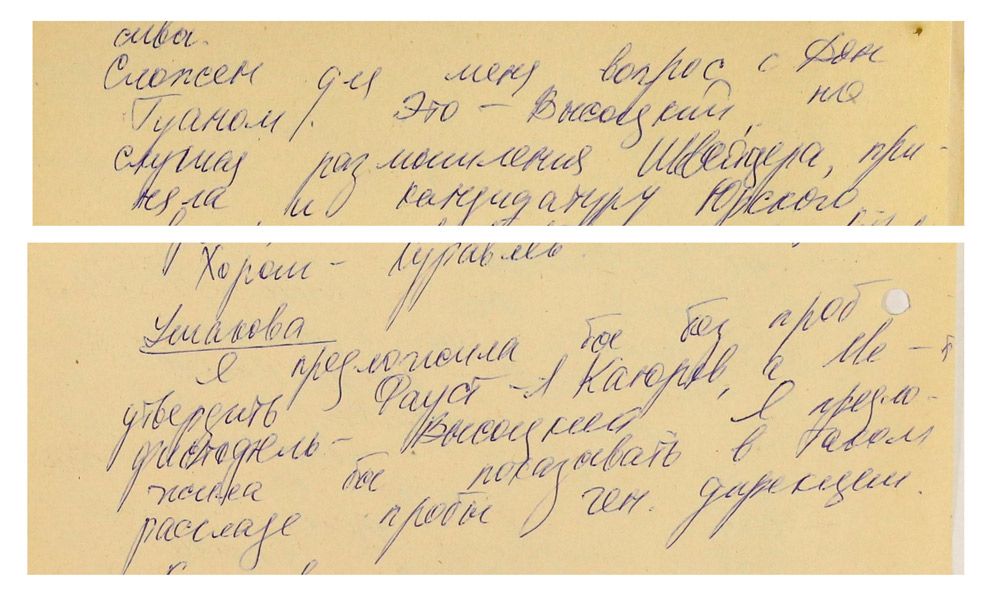 сива.
Сложен для меня вопрос с Дон
Гуаном. Это – Высоцкий, но
слушая размышления Швейцера, при-
няла и кандидатуру Юрского
Хором – Журавль
Ушакова
Я предложила бы без проб
утвердить Фауст – Л Каюров, а Ме-
фистофель – Высоцкий Я предло-
жила бы показывать в таком
раскладе пробы ген. дирекции.